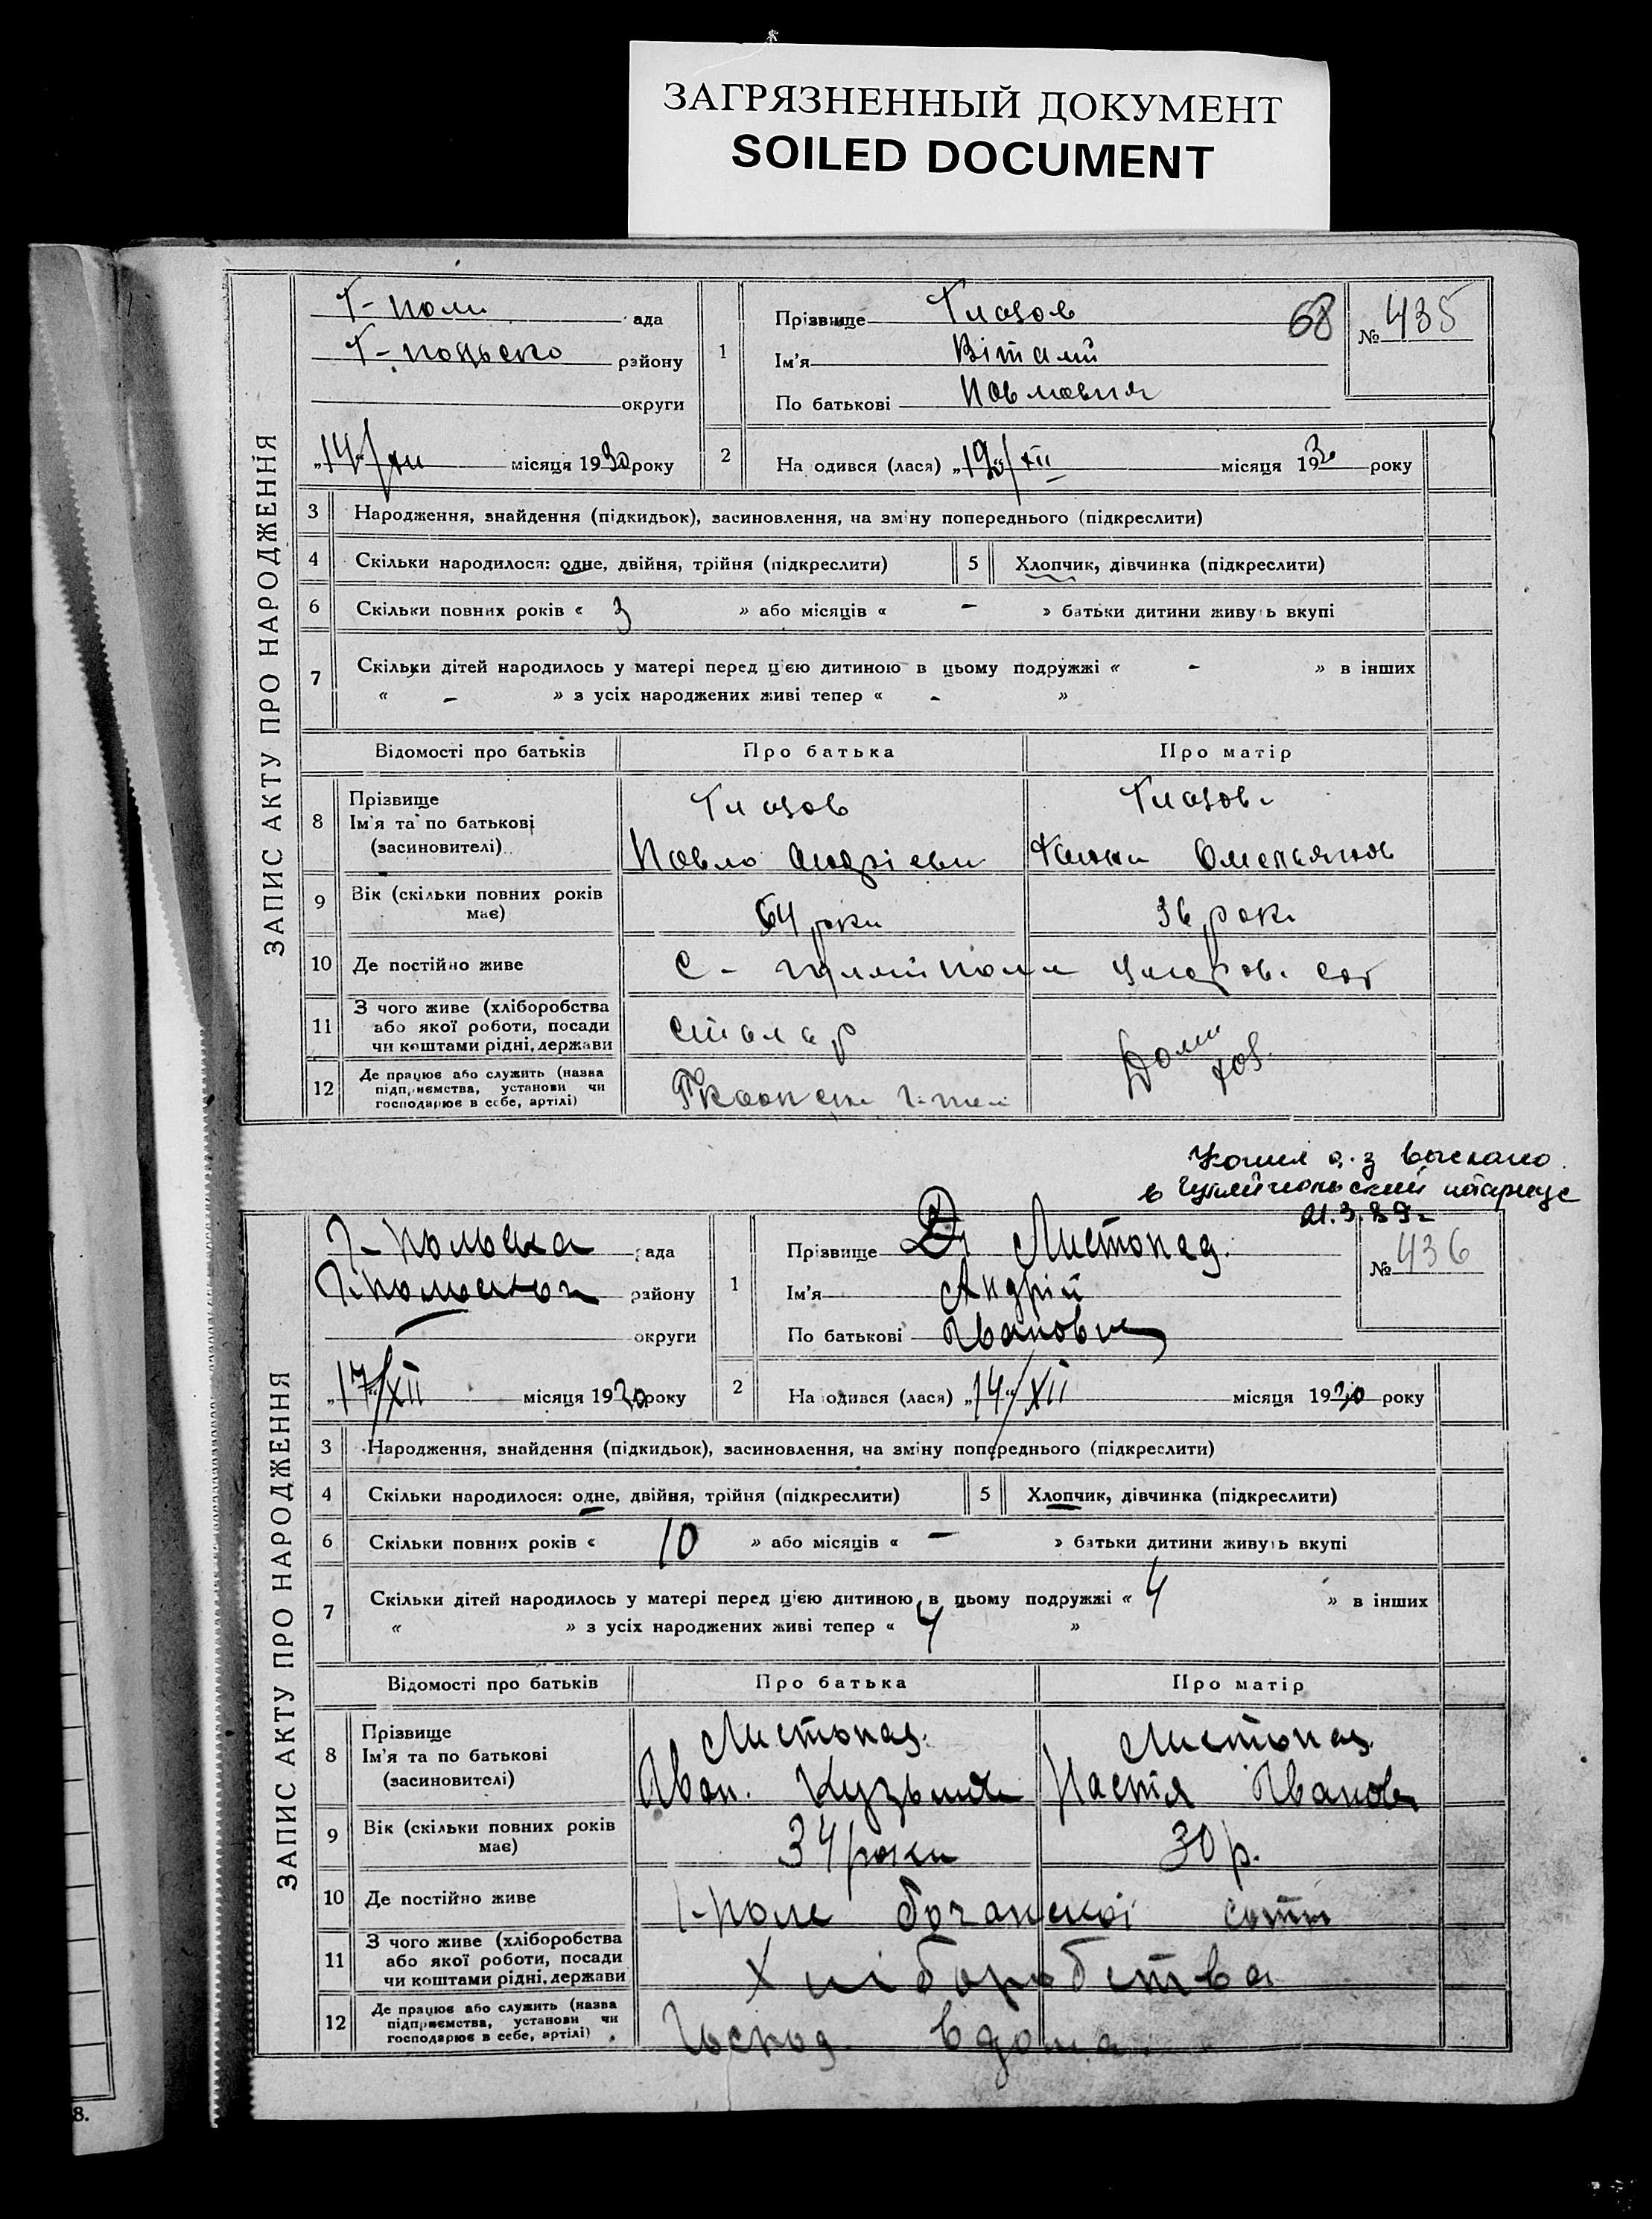 ЗАГРЯЗНЕННЫЙ ДОКУМЕНТ
SOILED DOCUMENT
ЗАПИС АКТУ ПРО НАРОДЖЕННЯ
Г-поли ада
района
округи
„14“/XII місяця 1930 року
1
Прізвище Глазов
Ім'я Віталій
По батькові Павлович
68
№ 435
2
На одився (лася) XII місяця 193 року
3 Народження, знайдення (підкидьок), засиновлення, на зміну попереднього (підкреслити)
4 Скільки народилося: одне, двійня, трійня (підкреслити) 5 Хлопчик, дівчинка (підкреслити)
6 Скільки повних років « 3 » або місяців « – » батьки дитини живуть вкупі
7 Скільки дітей народилось у матері перед цією дитиною в цьому подружжі « – » в інших
« – » з усіх народжених живі тепер « – »
Відомості про батьків Про батька Про матір
8 Прізвище
Ім'я та по батькові
(засиновителі)
Глазов
Павло Андрієви
Глазов
9 Вік (скільки повних років
має)
роки 36 рок.
10 Де постійно живе
С-
11 З чого живе (хліборобства
або якої роботи, посади
чи коштами рідні, держави
столяр
12 Де працює або служить (назва
підприємства, установи чи
господарює в себе, артілі)
Дом
хоз.
выслано
в Гуляйпольский нотариус
21.3.89г
ЗАПИС АКТУ ПРО НАРОДЖЕННЯ
Г-польска ада
району
округи
„17“/XII місяця 1930 року
1
Прізвище Листопад.
Ім'я Андрій
По батькові Іванович
№ 436
2
На одився (лася) „14“/XII місяця 1930 року
3 Народження, знайдення (підкидьок), засиновлення, на зміну попереднього (підкреслити)
4 Скільки народилося: одне, двійня, трійня (підкреслити) 5 Хлопчик, дівчинка (підкреслити)
6 Скільки повних років « 10 » або місяців « – » батьки дитини живуть вкупі
7 Скільки дітей народилось у матері перед цією дитиною в цьому подружжі « 4 » в інших
« » з усіх народжених живі тепер « 4 »
Відомості про батьків Про батька Про матір
8 Прізвище
Ім'я та по батькові
(засиновителі)
Листопад. Листопад
Іван. Кузьмич Настя Іванов
9 Вік (скільки повних років
має)
34 роки 30 р.
10 Де постійно живе
Г-поле сотн
11 З чого живе (хліборобства
або якої роботи, посади
чи коштами рідні, держави
Хліборобства
12 Де працює або служить (назва
підприємства, установи чи
господарює в себе, артілі)
Господ. вдома.
8.